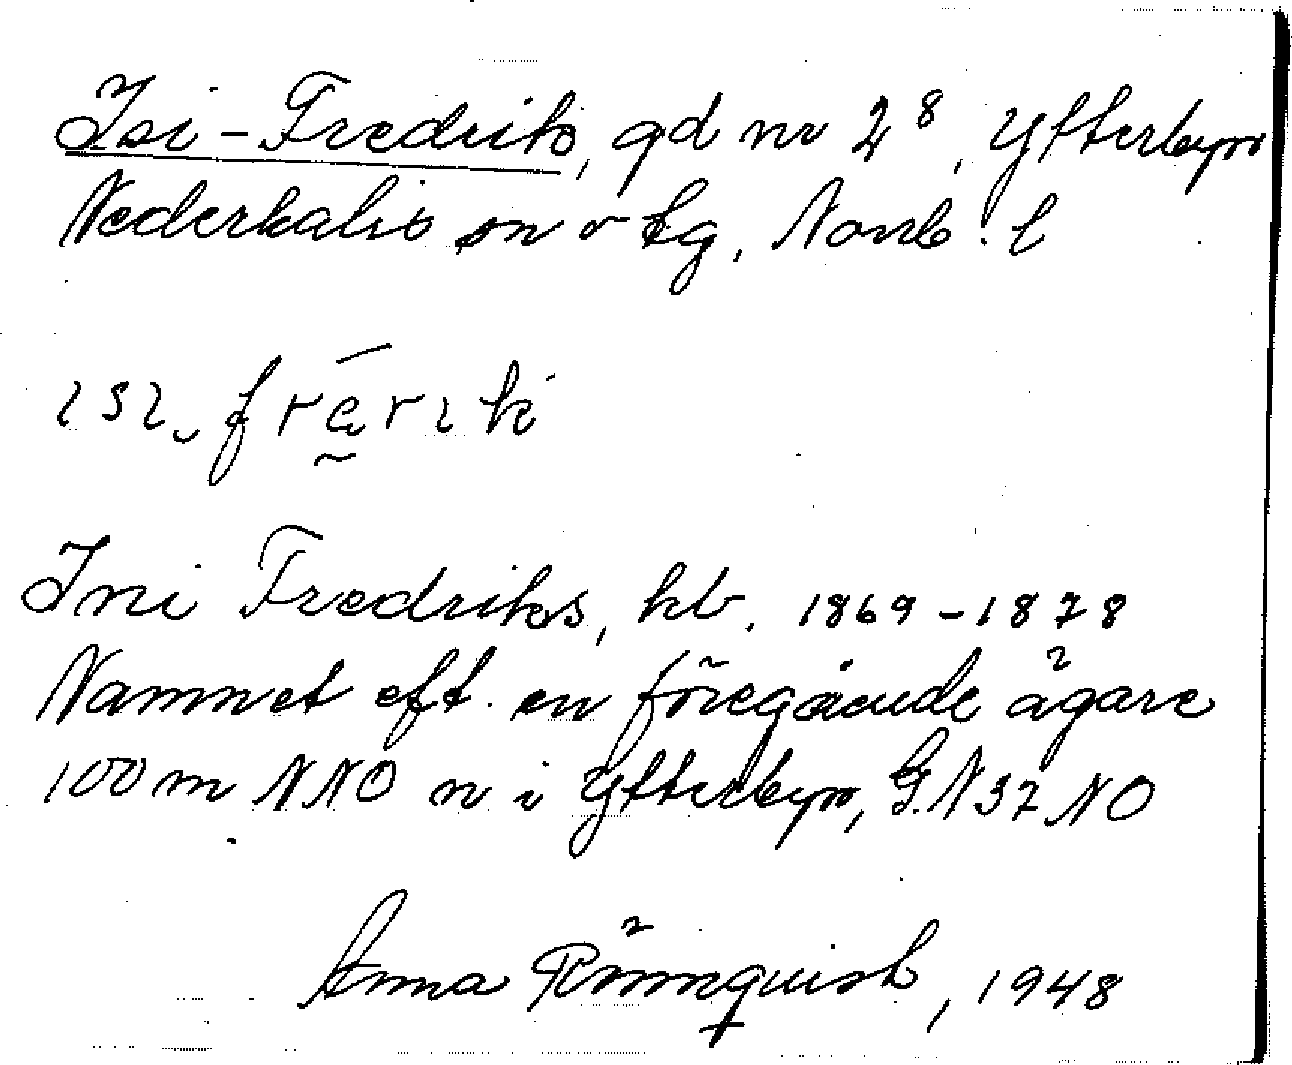 Isi-Fredriks, gd nr 2⁸, Ytterbyn
Nederkalix sn o tg, Norrb. l
ɩsɩ‿frērɩk
Ini Fredriks, kb. 1869-1878
Namnet eft. en föregående ägare
100 m NNO n i Ytterbyn, G.N37NO
Anna Rönnquist, 1948